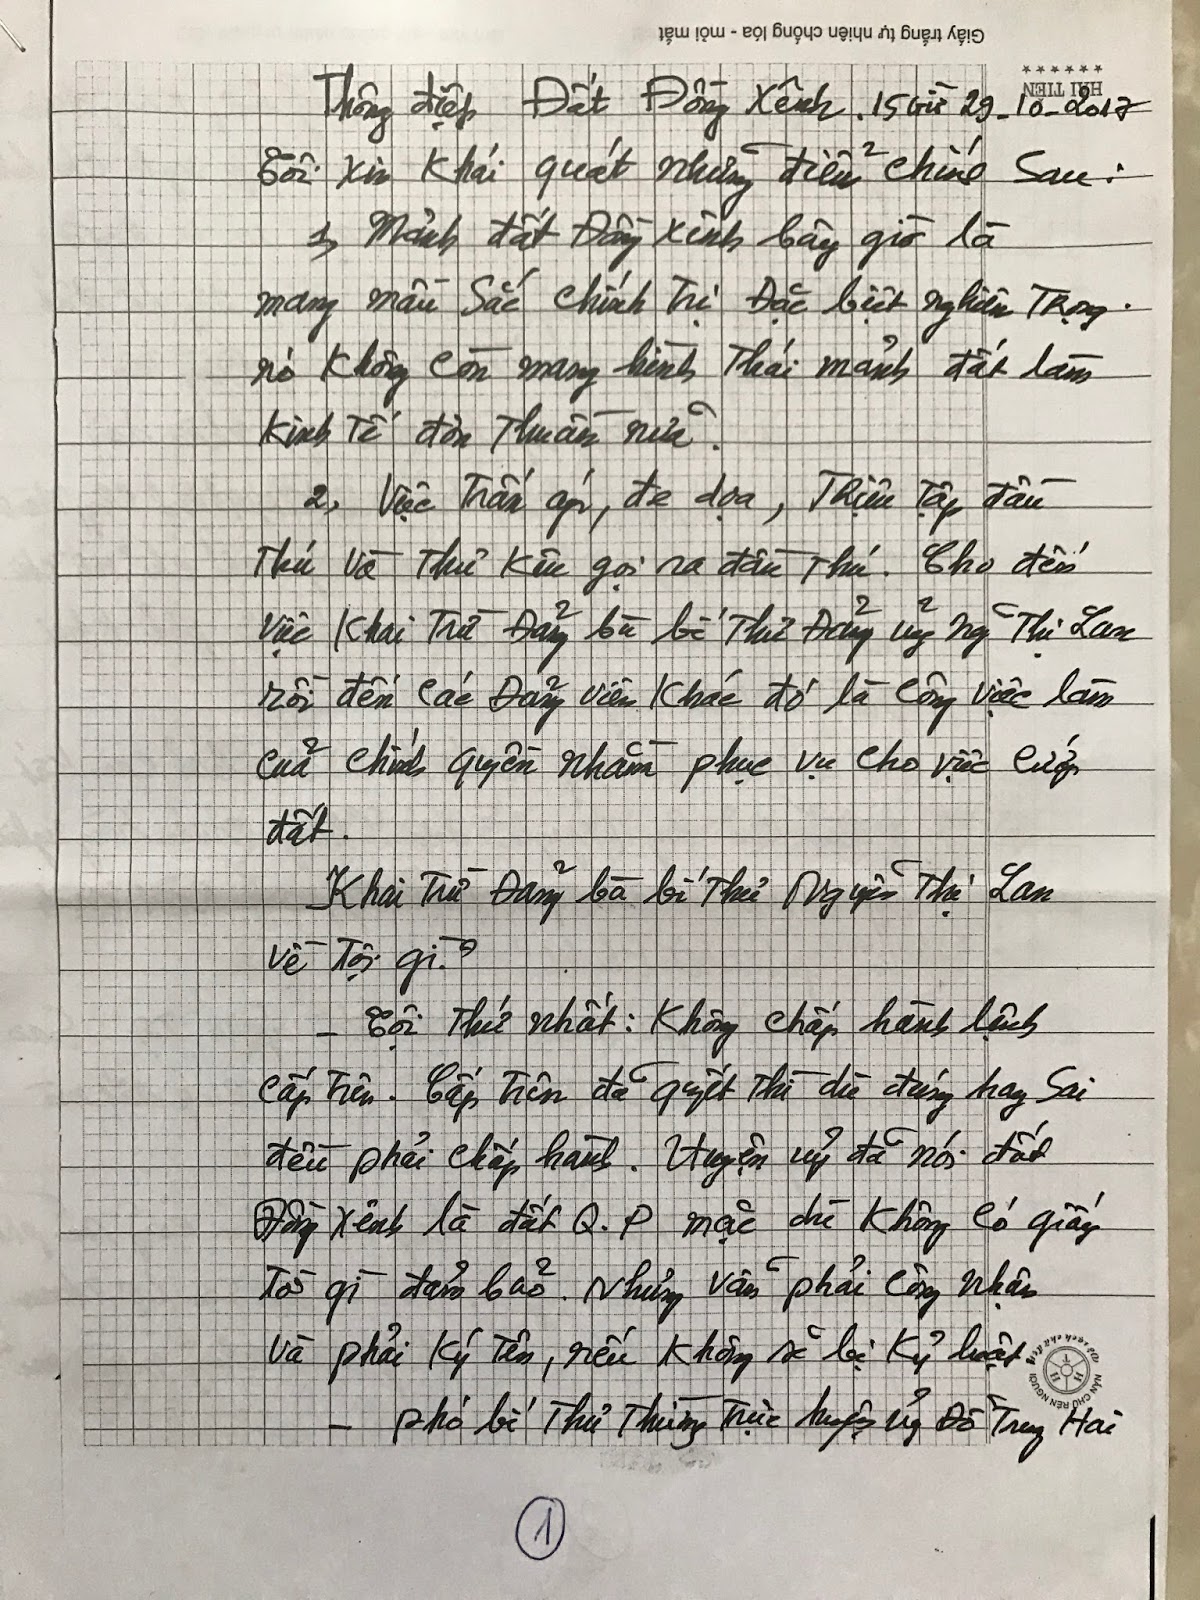 Giấy trắng tự nhiên chống lóa - mỏi mắt
HẢI TIẾN
Thông điệp Đất Đồng Xênh. 15 giờ 29-10-2017
Tôi xin khái quát những điểm chính sau:
1, Mảnh đất Đồng Xênh bây giờ là
mang mầu sắc chính trị Đặc biệt nghiêm Trọng.
nó không còn mang hình Thái mảnh đất làm
kinh tế đơn Thuần nữa.
2, Việc Trấn áp, đe dọa, Triệu tập đầu
Thú và Thư kêu gọi ra đầu Thú. Cho đến
việc khai Trừ Đảng bà bí Thư Đảng uỷ Ng Thị Lan
rồi đến các Đảng viên khác đó là công việc làm
của chính quyền nhằm phục vụ cho việc cướp
đất.
Khai Trừ Đảng bà bí Thư Nguyễn Thị Lan
về Tội gì?
- Tội Thứ nhất: Không chấp hành lệnh
cấp Trên. Cấp Trên đã quyết Thì dù đúng hay Sai
đều phải chấp hành. Huyện uỷ đã nói đất
Đồng Xênh là đất Q.P mặc dù không có giấy
Tờ gì đảm bảo. Nhưng vẫn phải công nhận
và phải ký Tên, nếu không sẽ bị kỷ luật
- phó bí Thư Thường Trực huyện ủy Đỗ Trung Hai
NẮN CHỮ RÈN NGƯỜI
1